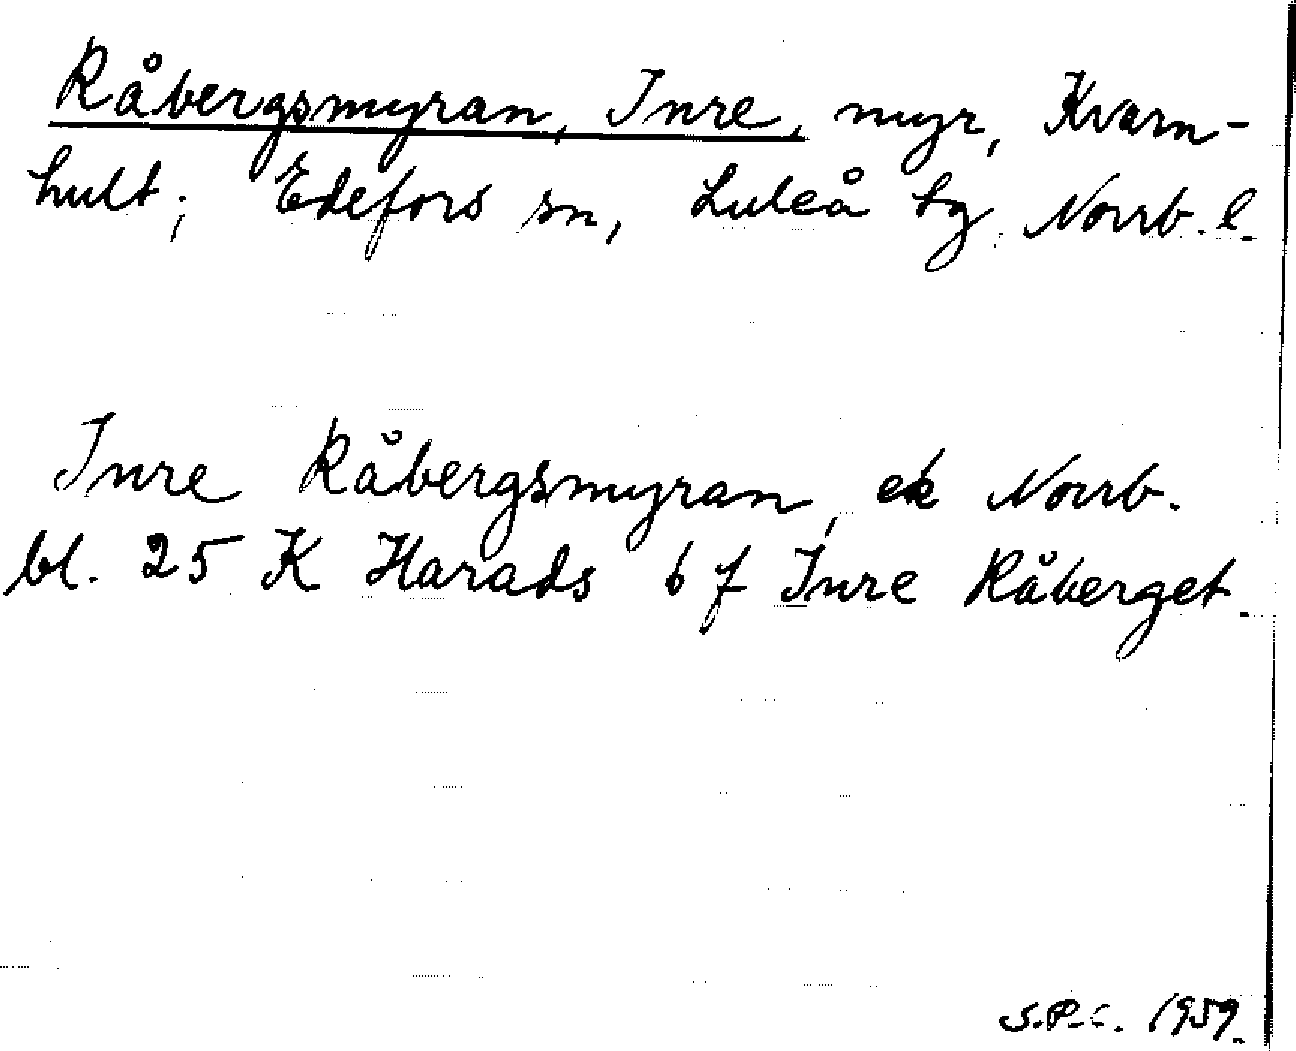 Råbergsmyran, Inre, myr, Kvarn-
hult; Edefors sn, Luleå tg. Norrb. l.
Inre Råbergsmyran, ek Norrb.
bl. 25 K Harads 6 f Inre Råberget.
S.P-C. 1959.